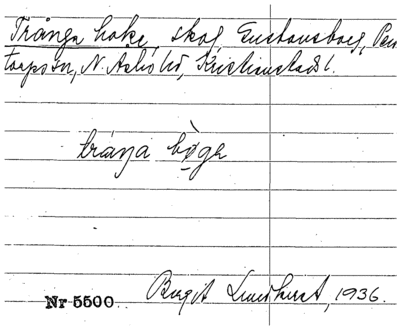 Trånga hoke, skog, Gustavsborg, Per
torps sn, N. Åsbo hd, Kristianstads l.
tråŋa
Nr 5500 Birgit Lundkvist, 1936.